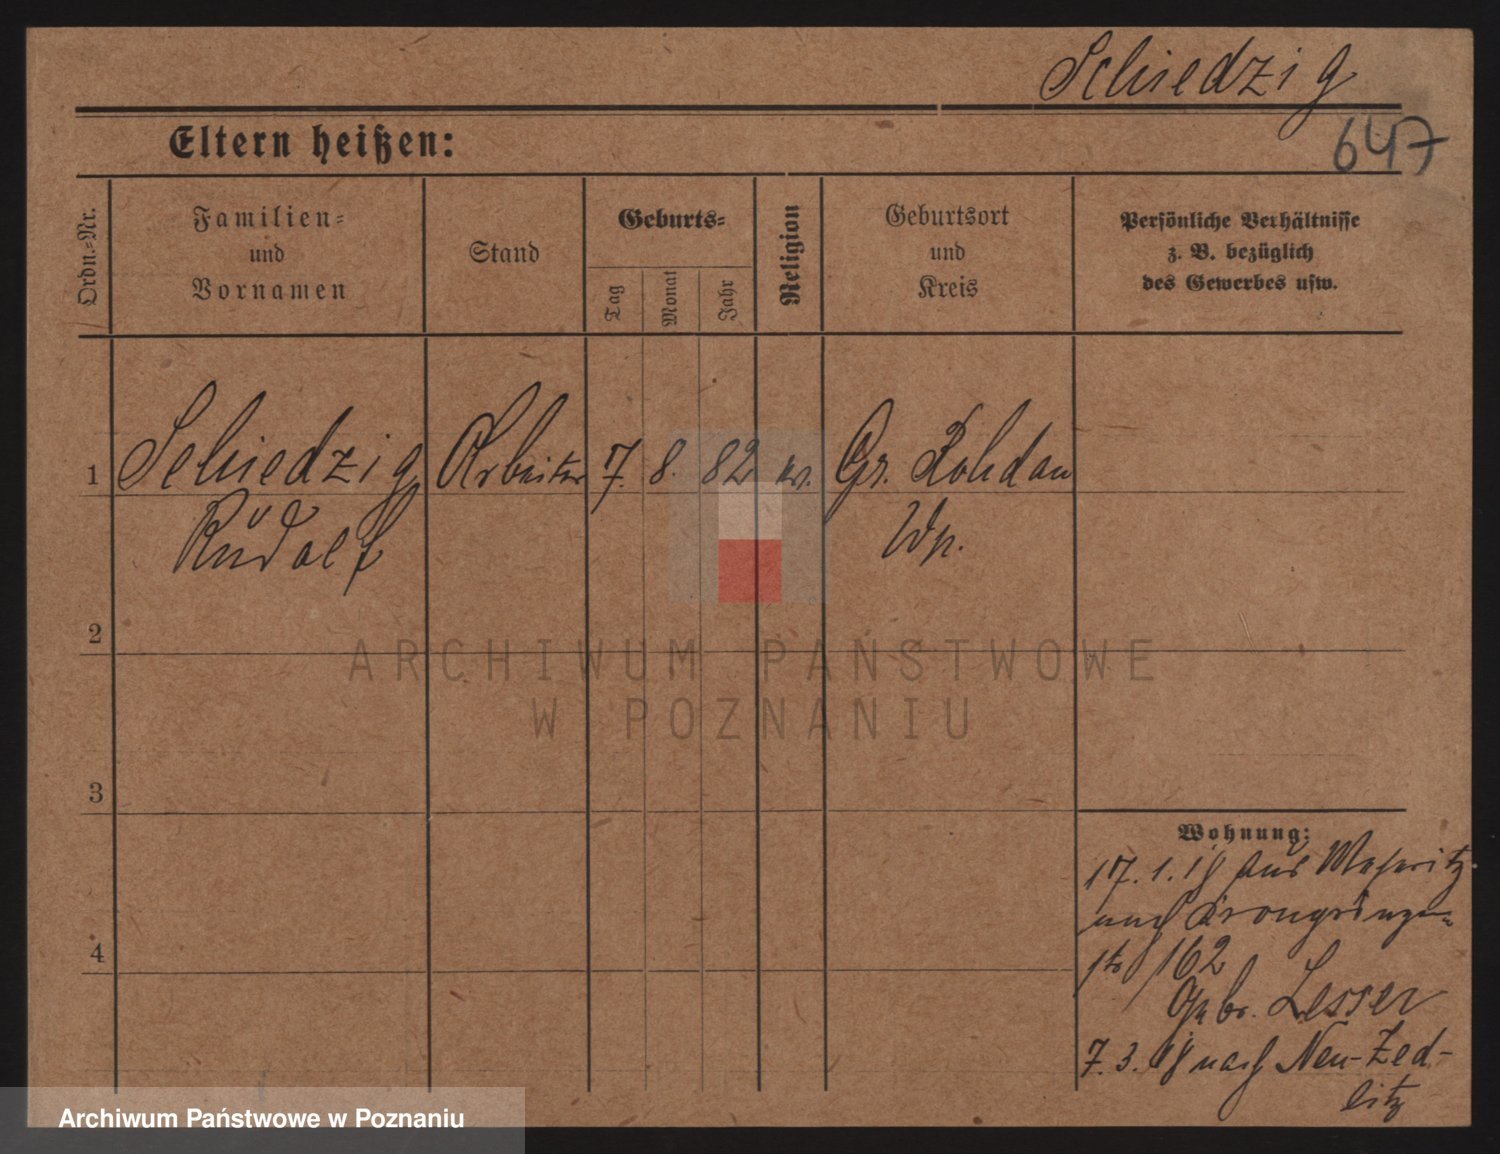 Schiedzig
647
Eltern heißen:
Ordn.=Nr.
Familien=
und
Vornamen
Stand
Geburts=
Tag
Monat
Jahr
Religion
Geburtsort
und
Kreis
Persönliche Verhältnisse
z. B. bezüglich
des Gewerbes usw.
1 Schiedzig Arbeiter 7. 8. 82 ev. Gr. Rohdau
Rudolf Wp.
2
3
4
Wohnung:
17. 1. 18 aus Meseritz
nach
162
Gebr. Lesser
7. 3. 18 nach Neu-Zed-
litz
ARCHIWUM PAŃSTWOWE
W POZNANIU
Archiwum Państwowe w Poznaniu